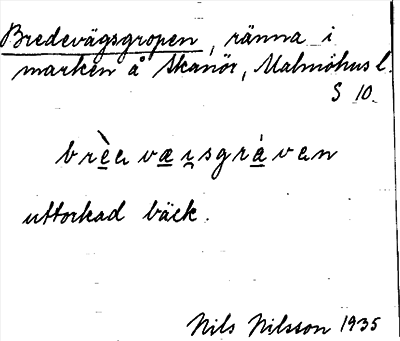 Bredevägsgropen, ränna i
marken å Skanör, Malmöhus l.
S 10.
uttorkad bäck.
Nils Nilsson 1935